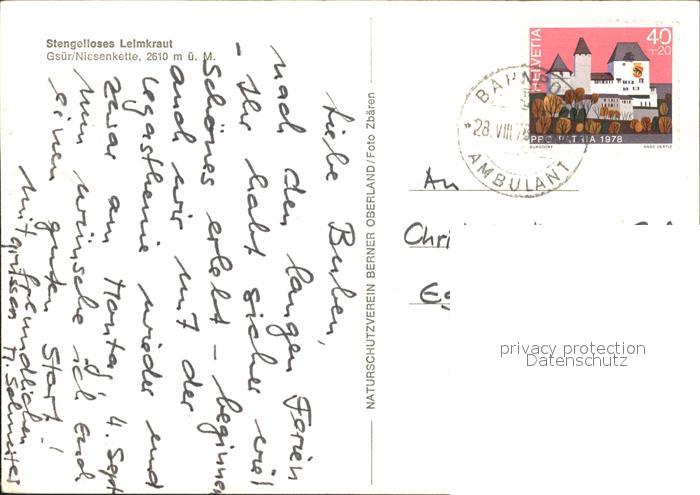 Stengelloses Leimkraut
Gsür/Nicsenkette, 2610 m ü. M.
Liebe Buben,
nach den langen Ferien
- Ihr habt sicher viel
schönes erlebt - beginnen
auch wir mit der
Legasthenie wieder und
zwar am Montag, 4. Sept.
Nun wünsche ich Euch
einen guten Start!
Mit freundlichen
grüssen
NATURSCHUTZVEREIN BERNER OBERLAND/Foto Zbären
HELVETIA
40
+20
PRO PATRIA 1978
BURGDORF
ANNE OERTLE
28.VIII.78
AMBULANT
An
privacy protection
Datenschutz